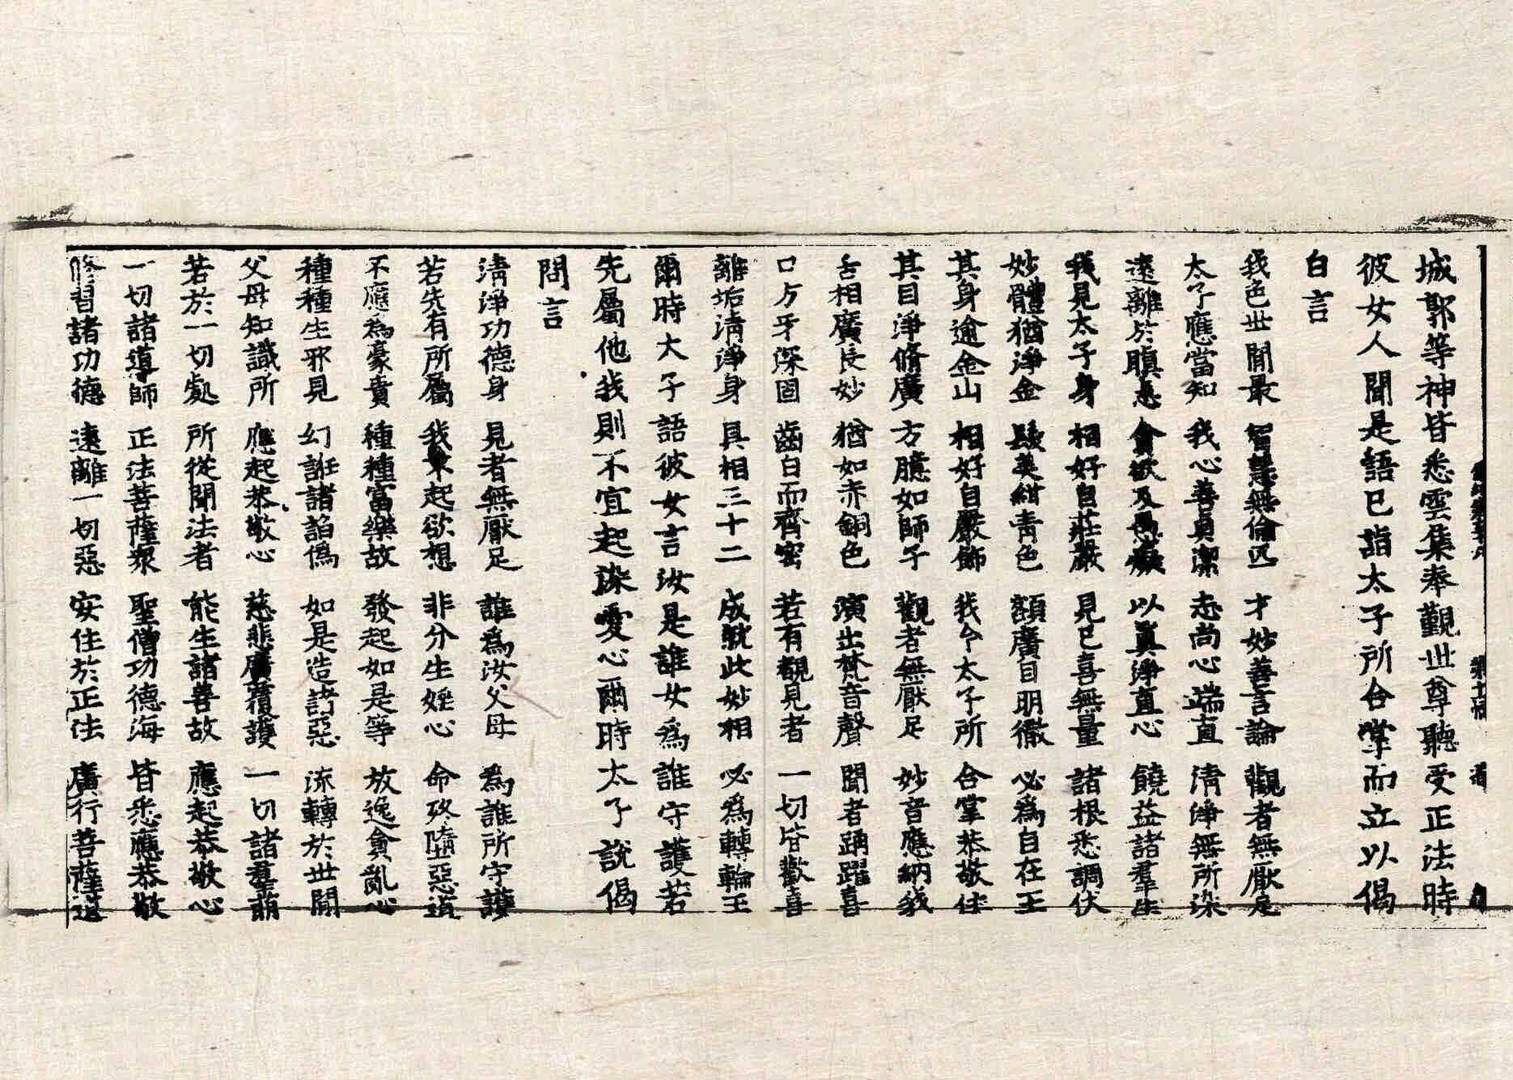 城郭等神皆悉雲集奉觀世尊聽受正法時
彼女人聞是語已詣太子所合掌而立以偈
白言
我色世間最 智慧無倫匹 才妙善言論 觀者無厭足
太子應當知 我心善真潔 志尚心端直 清淨無所染
遠離於瞋恚 貪欲及愚癡 以真淨直心 饒益諸羣生
我見太子身 相好自莊嚴 見已喜無量 諸根悉調伏
妙體猶淨金 髮美紺青色 額廣目明徹 必為自在王
其身逾金山 相好自嚴飾 我今太子所 合掌恭敬住
其目淨脩廣 方臆如師子 觀者無厭足 妙音應納我
舌相廣長妙 猶如赤銅色 演出梵音聲 聞者踊躍喜
口方牙深固 齒白而齊密 若有觀見者 一切皆歡喜
離垢清淨身 具相三十二 成就此妙相 必為轉輪王
爾時太子語彼女言汝是誰女為誰守護若
先屬他我則不宜起染愛心爾時太子說偈
問言
清淨功德身 見者無厭足 誰為汝父母 為誰所守護
若先有所屬 我不起欲想 非分生婬心 命終墮惡道
不應為豪貴 種種富樂故 發起如是等 放逸貪亂心
種種生邪見 幻誑諸諂偽 如是造諸惡 流轉於世間
父母知識所 應起恭敬心 慈悲廣覆護 一切諸羣萌
若於一切處 所從聞法者 能生諸善故 應起恭敬心
一切諸導師 正法菩薩眾 聖僧功德海 皆悉應恭敬
修習諸功德 遠離一切惡 安住於正法 廣行菩薩道